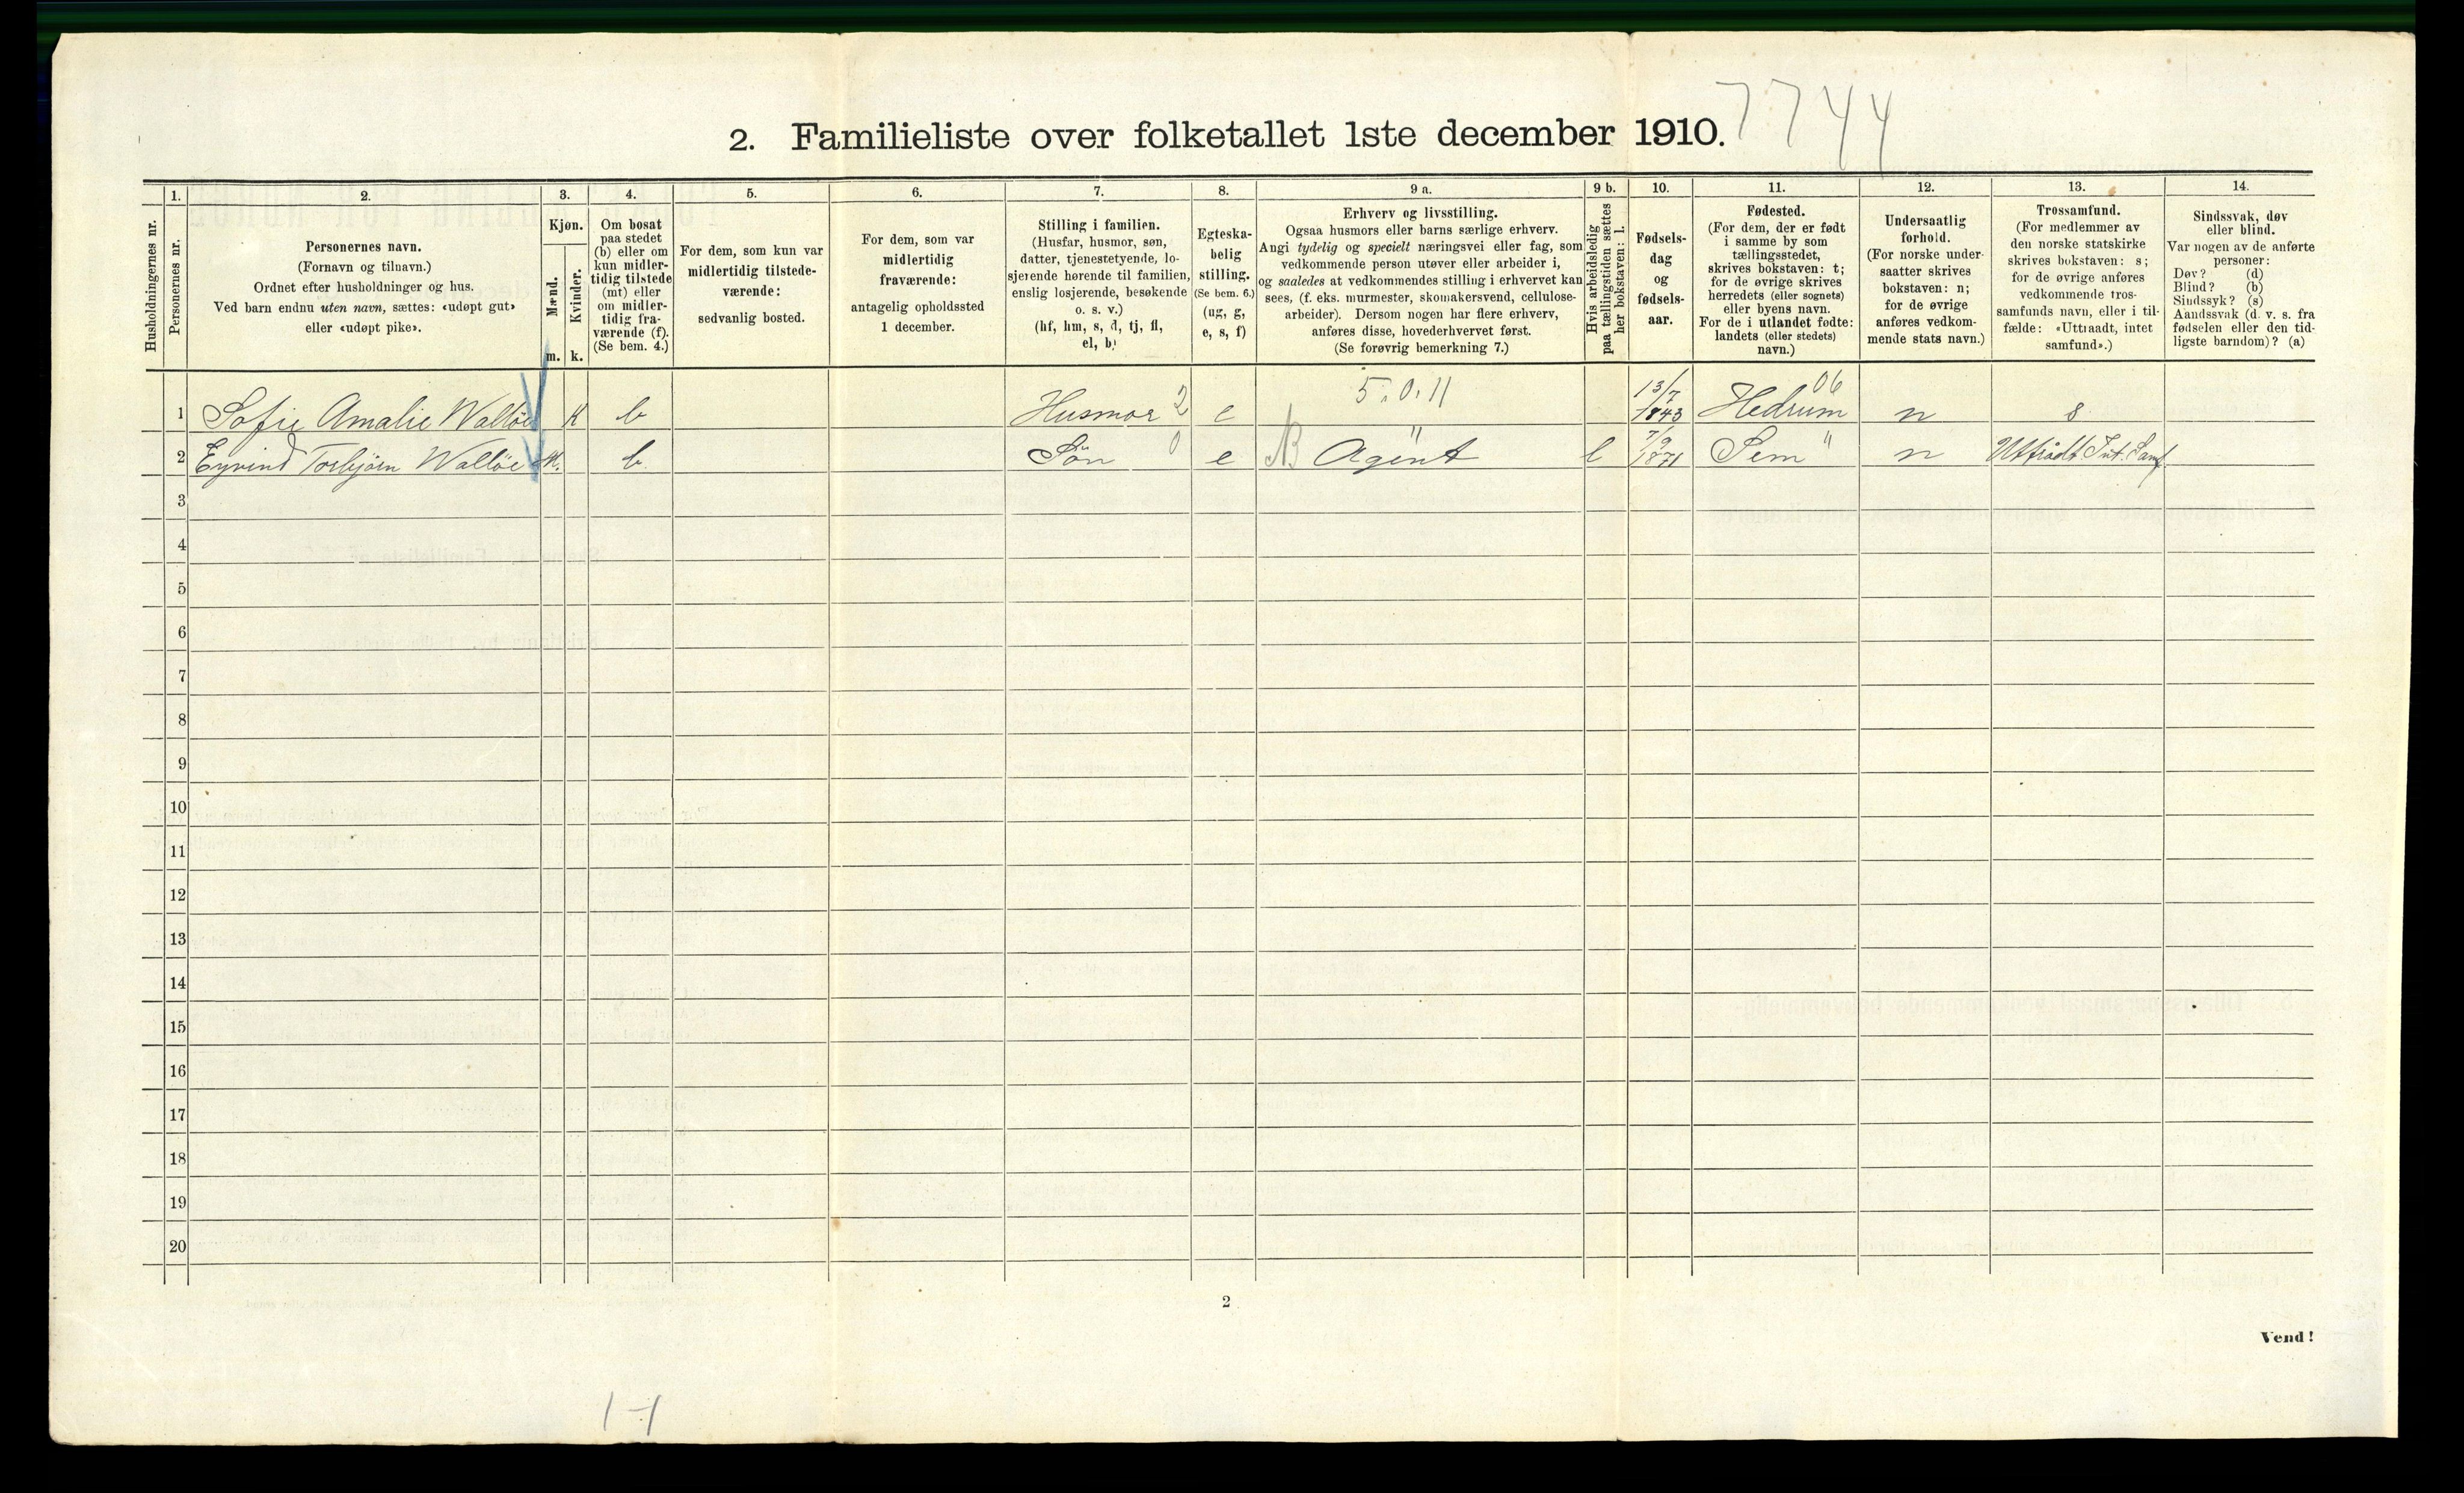 7744
2. Familieliste over folketallet 1ste december 1910.
Husholdningernes nr.
1.
Personernes nr.
2.
Personernes navn.
(Fornavn og tilnavn.)
Ordnet efter husholdninger og hus.
Ved barn endnu uten navn, sættes: «udøpt gut»
eller «udøpt pike».
3.
Kjøn.
Mænd.
m.
Kvinder.
k.
4.
Om bosat
paa stedet
(b) eller om
kun midler-
tidig tilstede
(mt) eller
om midler-
tidig fra-
værende (f).
(Se bem. 4.)
5.
For dem, som kun var
midlertidig tilstede-
værende:
sedvanlig bosted.
6.
For dem, som var
midlertidig
fraværende:
antagelig opholdssted
1 december.
7.
Stilling i familien.
(Husfar, husmor, søn,
datter, tjenestetyende, lo-
sjerende hørende til familien,
enslig losjerende, besøkende
o. s. v.)
(hf, hm, s, d, tj, fl,
el, b)
8.
Egteska-
belig
stilling.
(Se bem. 6.)
(ug, g,
e, s, f)
9 a.
Erhverv og livsstilling.
Ogsaa husmors eller barns særlige erhverv.
Angi tydelig og specielt næringsvei eller fag, som
vedkommende person utøver eller arbeider i,
og saaledes at vedkommendes stilling i erhvervet kan
sees, (f. eks. murmester, skomakersvend, cellulose-
arbeider). Dersom nogen har flere erhverv,
anføres disse, hovederhvervet først.
(Se forøvrig bemerkning 7.)
9 b.
Hvis arbeidsledig
paa tællingstiden sættes
her bokstaven: l.
10.
Fødsels-
dag
og
fødsels-
aar.
11.
Fødested.
(For dem, der er født
i samme by som
tællingsstedet,
skrives bokstaven: t;
for de øvrige skrives
herredets (eller sognets)
eller byens navn.
For de i utlandet fødte:
landets (eller stedets)
navn.)
12.
Undersaatlig
forhold.
(For norske under-
saatter skrives
bokstaven: n;
for de øvrige
anføres vedkom-
mende stats navn.)
13.
Trossamfund.
(For medlemmer av
den norske statskirke
skrives bokstaven: s;
for de øvrige anføres
vedkommende tros-
samfunds navn, eller i til-
fælde: «Uttraadt, intet
samfund».)
14.
Sindssvak, døv
eller blind.
Var nogen av de anførte
personer:
Døv? (d)
Blind? (b)
Sindssyk? (s)
Aandssvak (d. v. s. fra
fødselen eller den tid-
ligste barndom)? (a)
1 Sofie Amalie Walløe K b Husmor 2 e 5.0.11 13/7 1843 Hedrum 06 n s
2 Eyvind Torbjørn Walløe M. b Søn 0 e " Agent l 7/9 1871 Sem " n Utträdt Int. Samf
3
4
5
6
7
8
9
10
11
12
13
14
15
16
17
18
19
20
2
Vend!
1-1